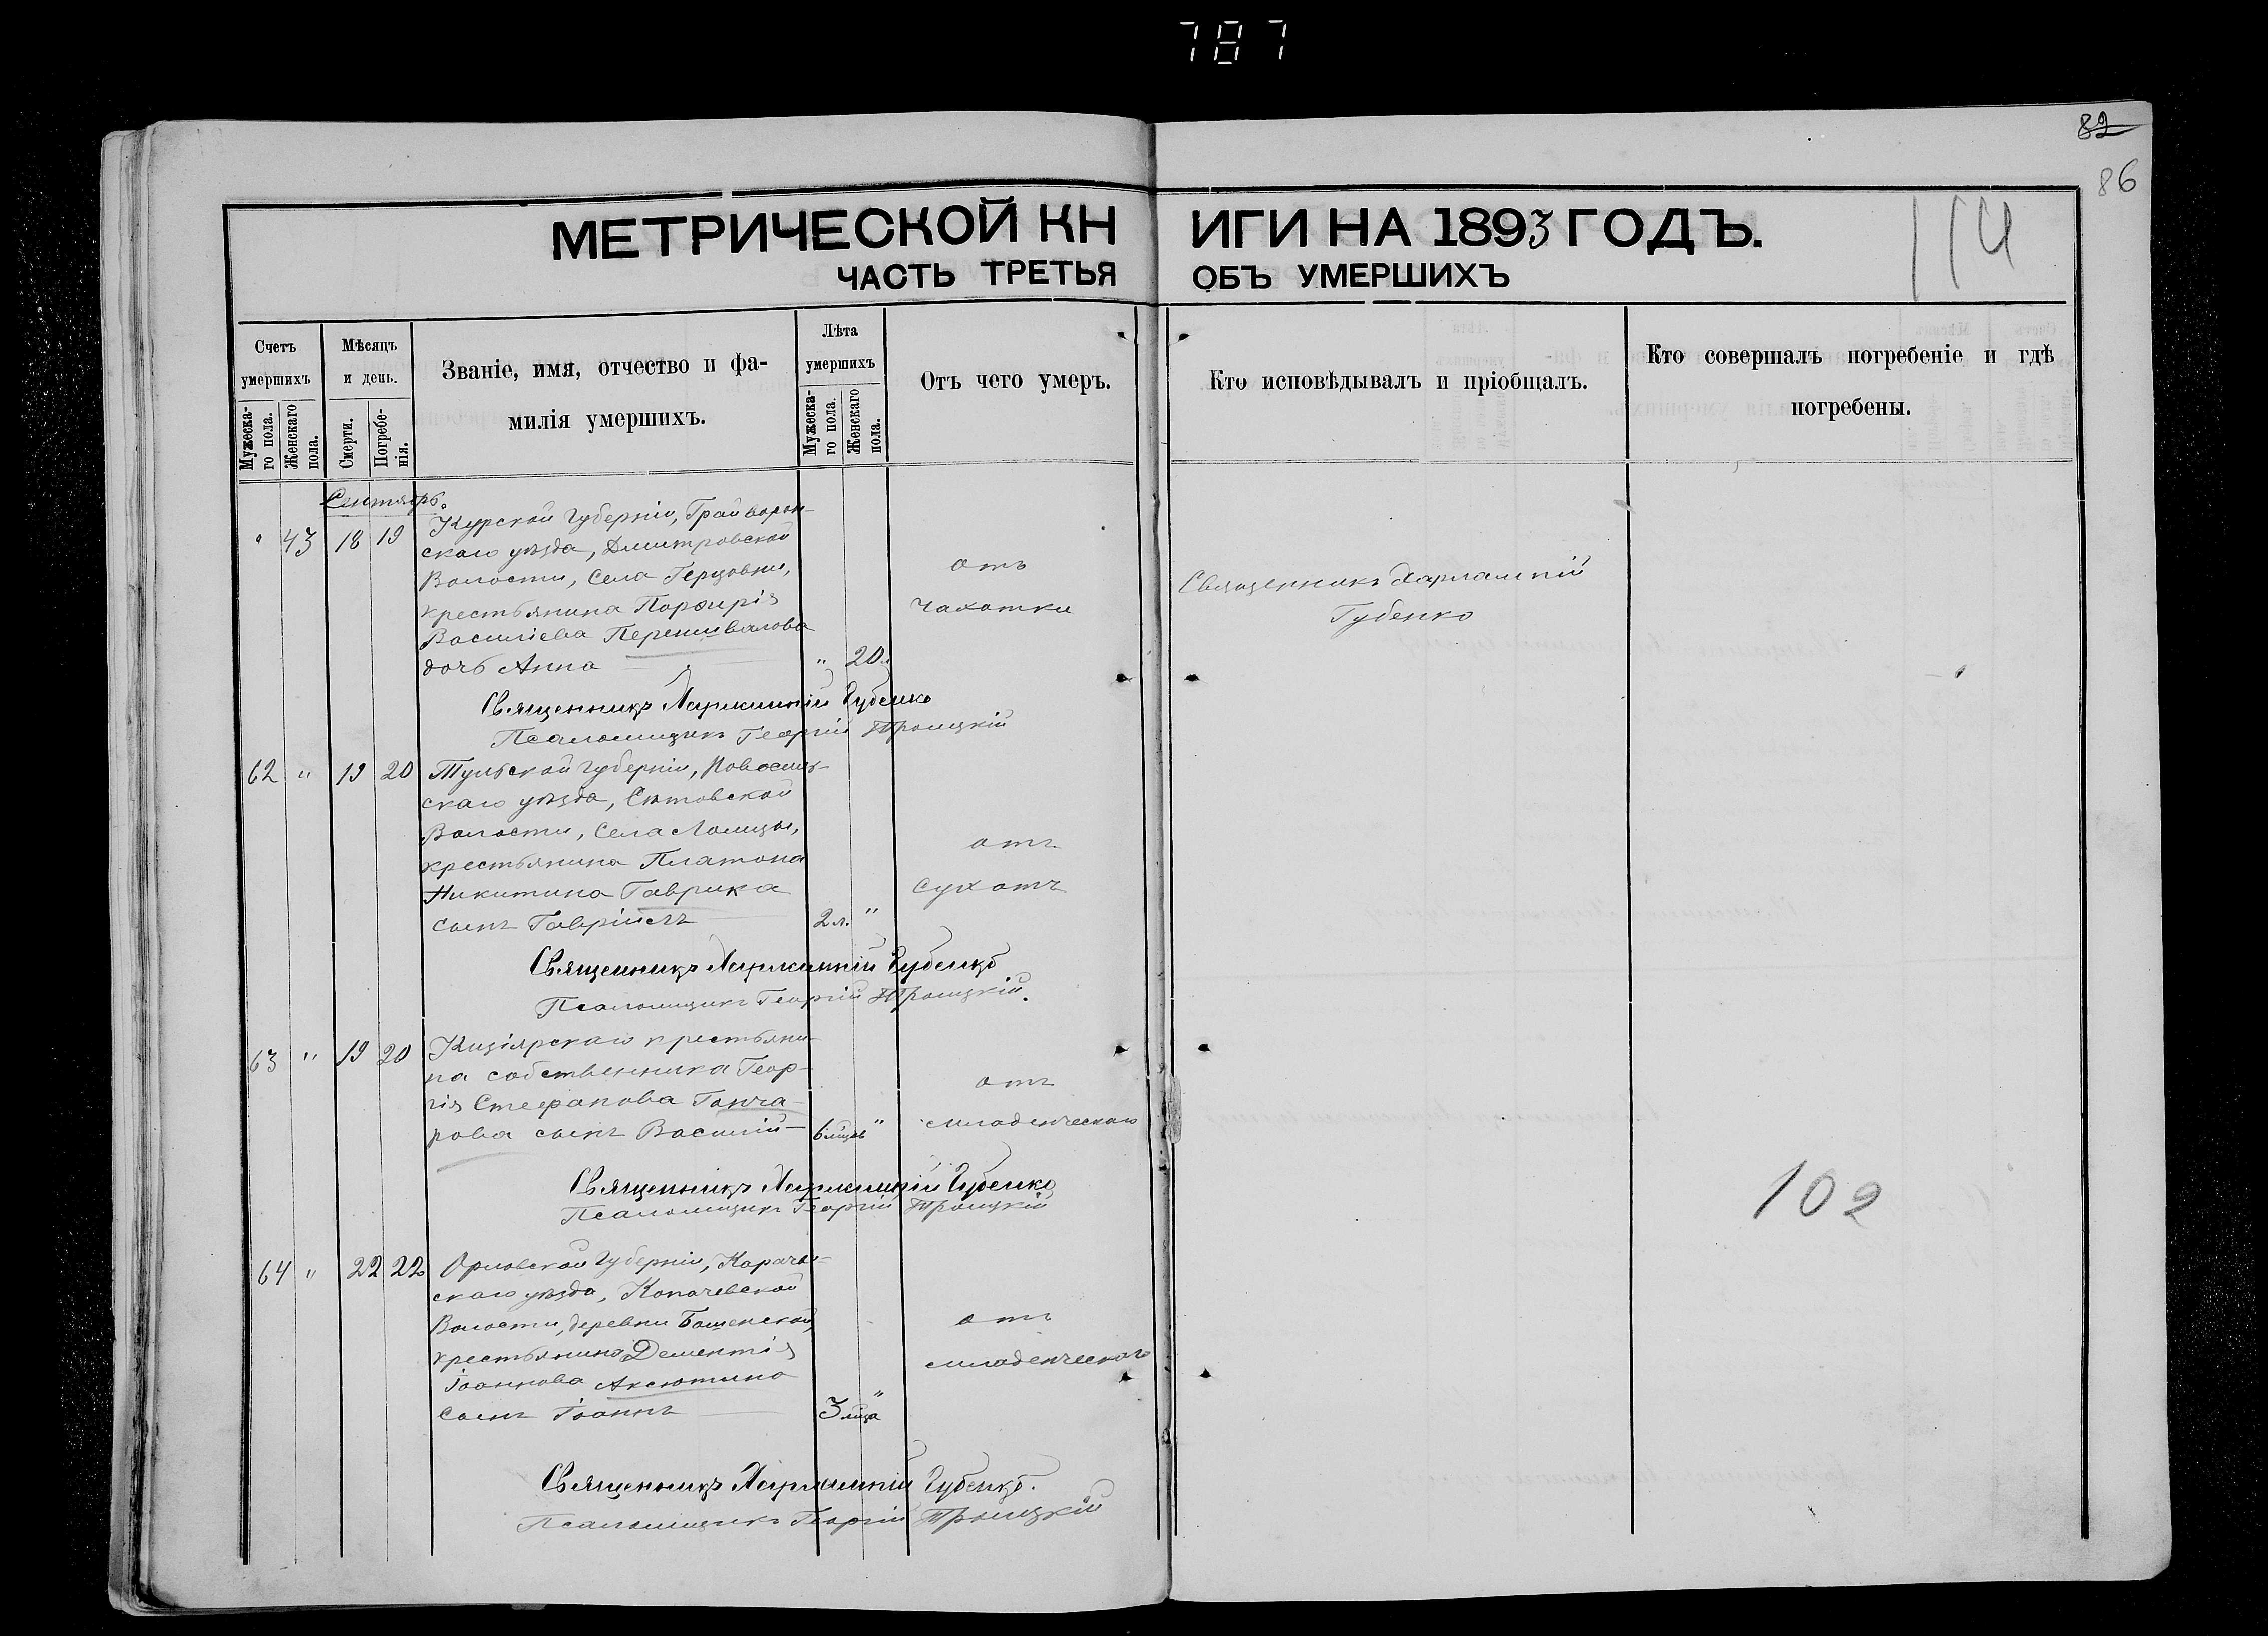 787
82
86
МЕТРИЧЕСКОЙ КНИГИ НА 1893 ГОДЪ.
114
ЧАСТЬ ТРЕТЬЯ ОБЪ УМЕРШИХЪ
Счетъ умершихъ
Мужеска-го пола.
Женскаго пола.
Мѣсяцъ и день.
Смерти.
Погребе-нія.
Званіе, имя, отчество и фа-
милія умершихъ.
Лѣта умершихъ
Мужеска-го пола.
Женскаго пола.
Отъ чего умеръ.
Кто исповѣдывалъ и пріобщалъ.
Кто совершалъ погребеніе и гдѣ
погребены.
Сентябрь.
" 43 18 19 Курской Губерніи, Грайворон-
скаго уѣзда, Дмитровской
Волости, Села Герцовки,
крестьянина Порфирія
Василіева Перешивалова
дочь Анна " 20 л.
отъ
чахотки
Священникъ Харлампій
Губенко
Священникъ Харлампій Губенко
Псаломщикъ Георгій Троицкій
62 " 19 20 Тульской Губерніи, Новосиль-
скаго уѣзда,
Волости, Села
крестьянина Платона
Никитина Гаврика
сынъ Гавріилъ 2 л. "
отъ
сухотъ
Священникъ Харлампій Губенко
Псаломщикъ Георгій Троицкій.
63 " 19 20 Кизіярскаго крестьяни-
на собственника Геор-
гія Стефанова Гонча-
рова сынъ Василій 6 мцвъ "
отъ
младенческаго
Священникъ Харлампій Губенко
Псаломщикъ Георгій Троицкій
102
64 " 22 22 Орловской Губерніи, Карачев-
скаго уѣзда,
Волости, деревни
крестьянина Дементія
Іоаннова Аксютина
сынъ Іоаннъ 3 мца "
отъ
младенческаго
Священникъ Харлампій Губенко.
Псаломщикъ Георгій Троицкій